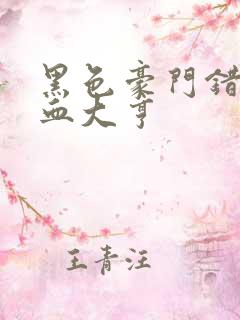 黑色豪門錯
血大亨
王青汪